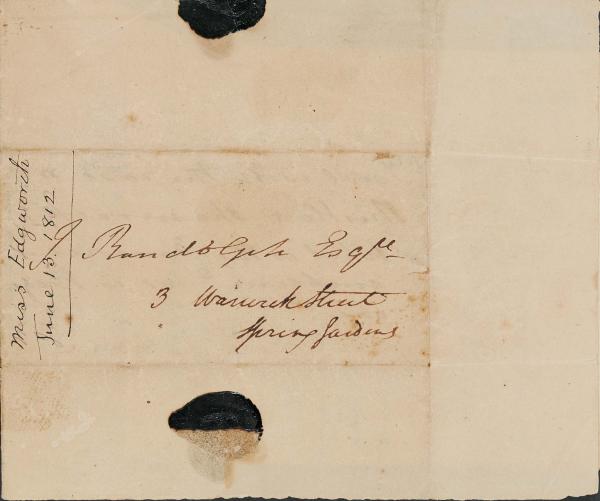 Miss Edgworth
June 13. 1812
J Randolph Esqre
3 Warwick Street
Spring Gardens